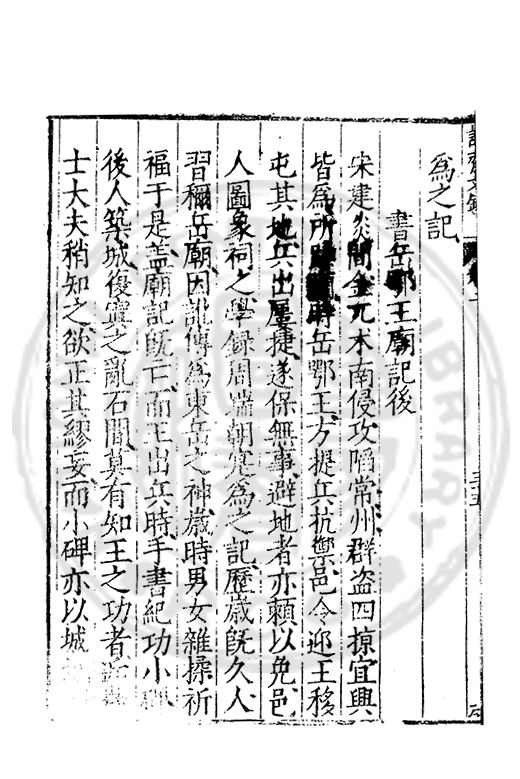 為之記
書岳鄂王廟記後
宋建炎間金兀朮南侵攻陷常州群盜四掠宜興
皆為所時岳鄂王方提兵抗禦邑令迎王移
屯其地兵出屢捷遂保無事避地者亦頼以免邑
人圖象祠之學録周端朝寔為之記歷歳旣久人
習稱岳廟因訛傳為東岳之神歳時男女雜揉祈
福于是葢廟記旣亡而王出兵時手書紀功小碑
後人築城復寘之亂石間莫有知王之功者
士大夫稍知之欲正其繆妄而小碑亦以城